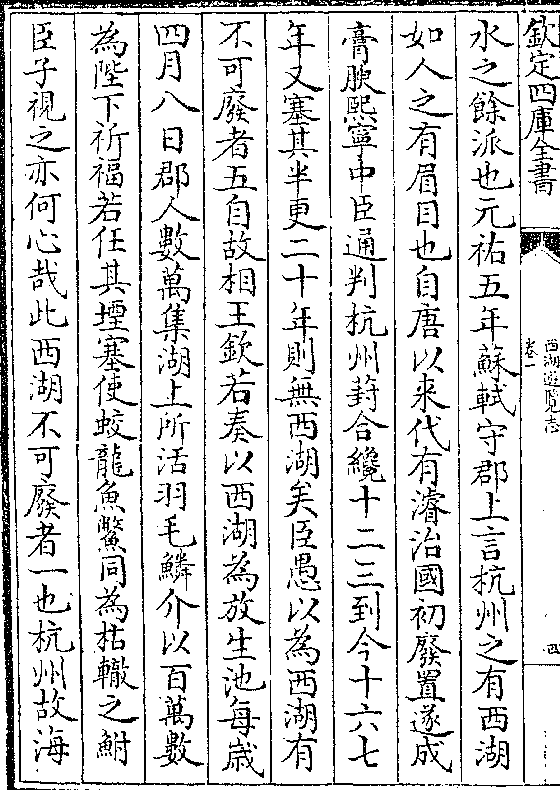 欽定四庫全書
西湖遊覽志
卷一
四
水之餘派也元祐五年蘇軾守郡上言杭州之有西湖
如人之有眉目也自唐以来代有濬治國初廢置遂成
膏腴熙寧中臣通判杭州葑合纔十二三到今十六七
年又塞其半更二十年則無西湖矣臣愚以為西湖有
不可廢者五自故相王欽若奏以西湖為放生池每歲
四月八日郡人數萬集湖上所活羽毛鱗介以百萬數
為陛下祈福若任其堙塞使蛟龍魚鱉同為枯轍之鮒
臣子視之亦何心哉此西湖不可廢者一也杭州故海